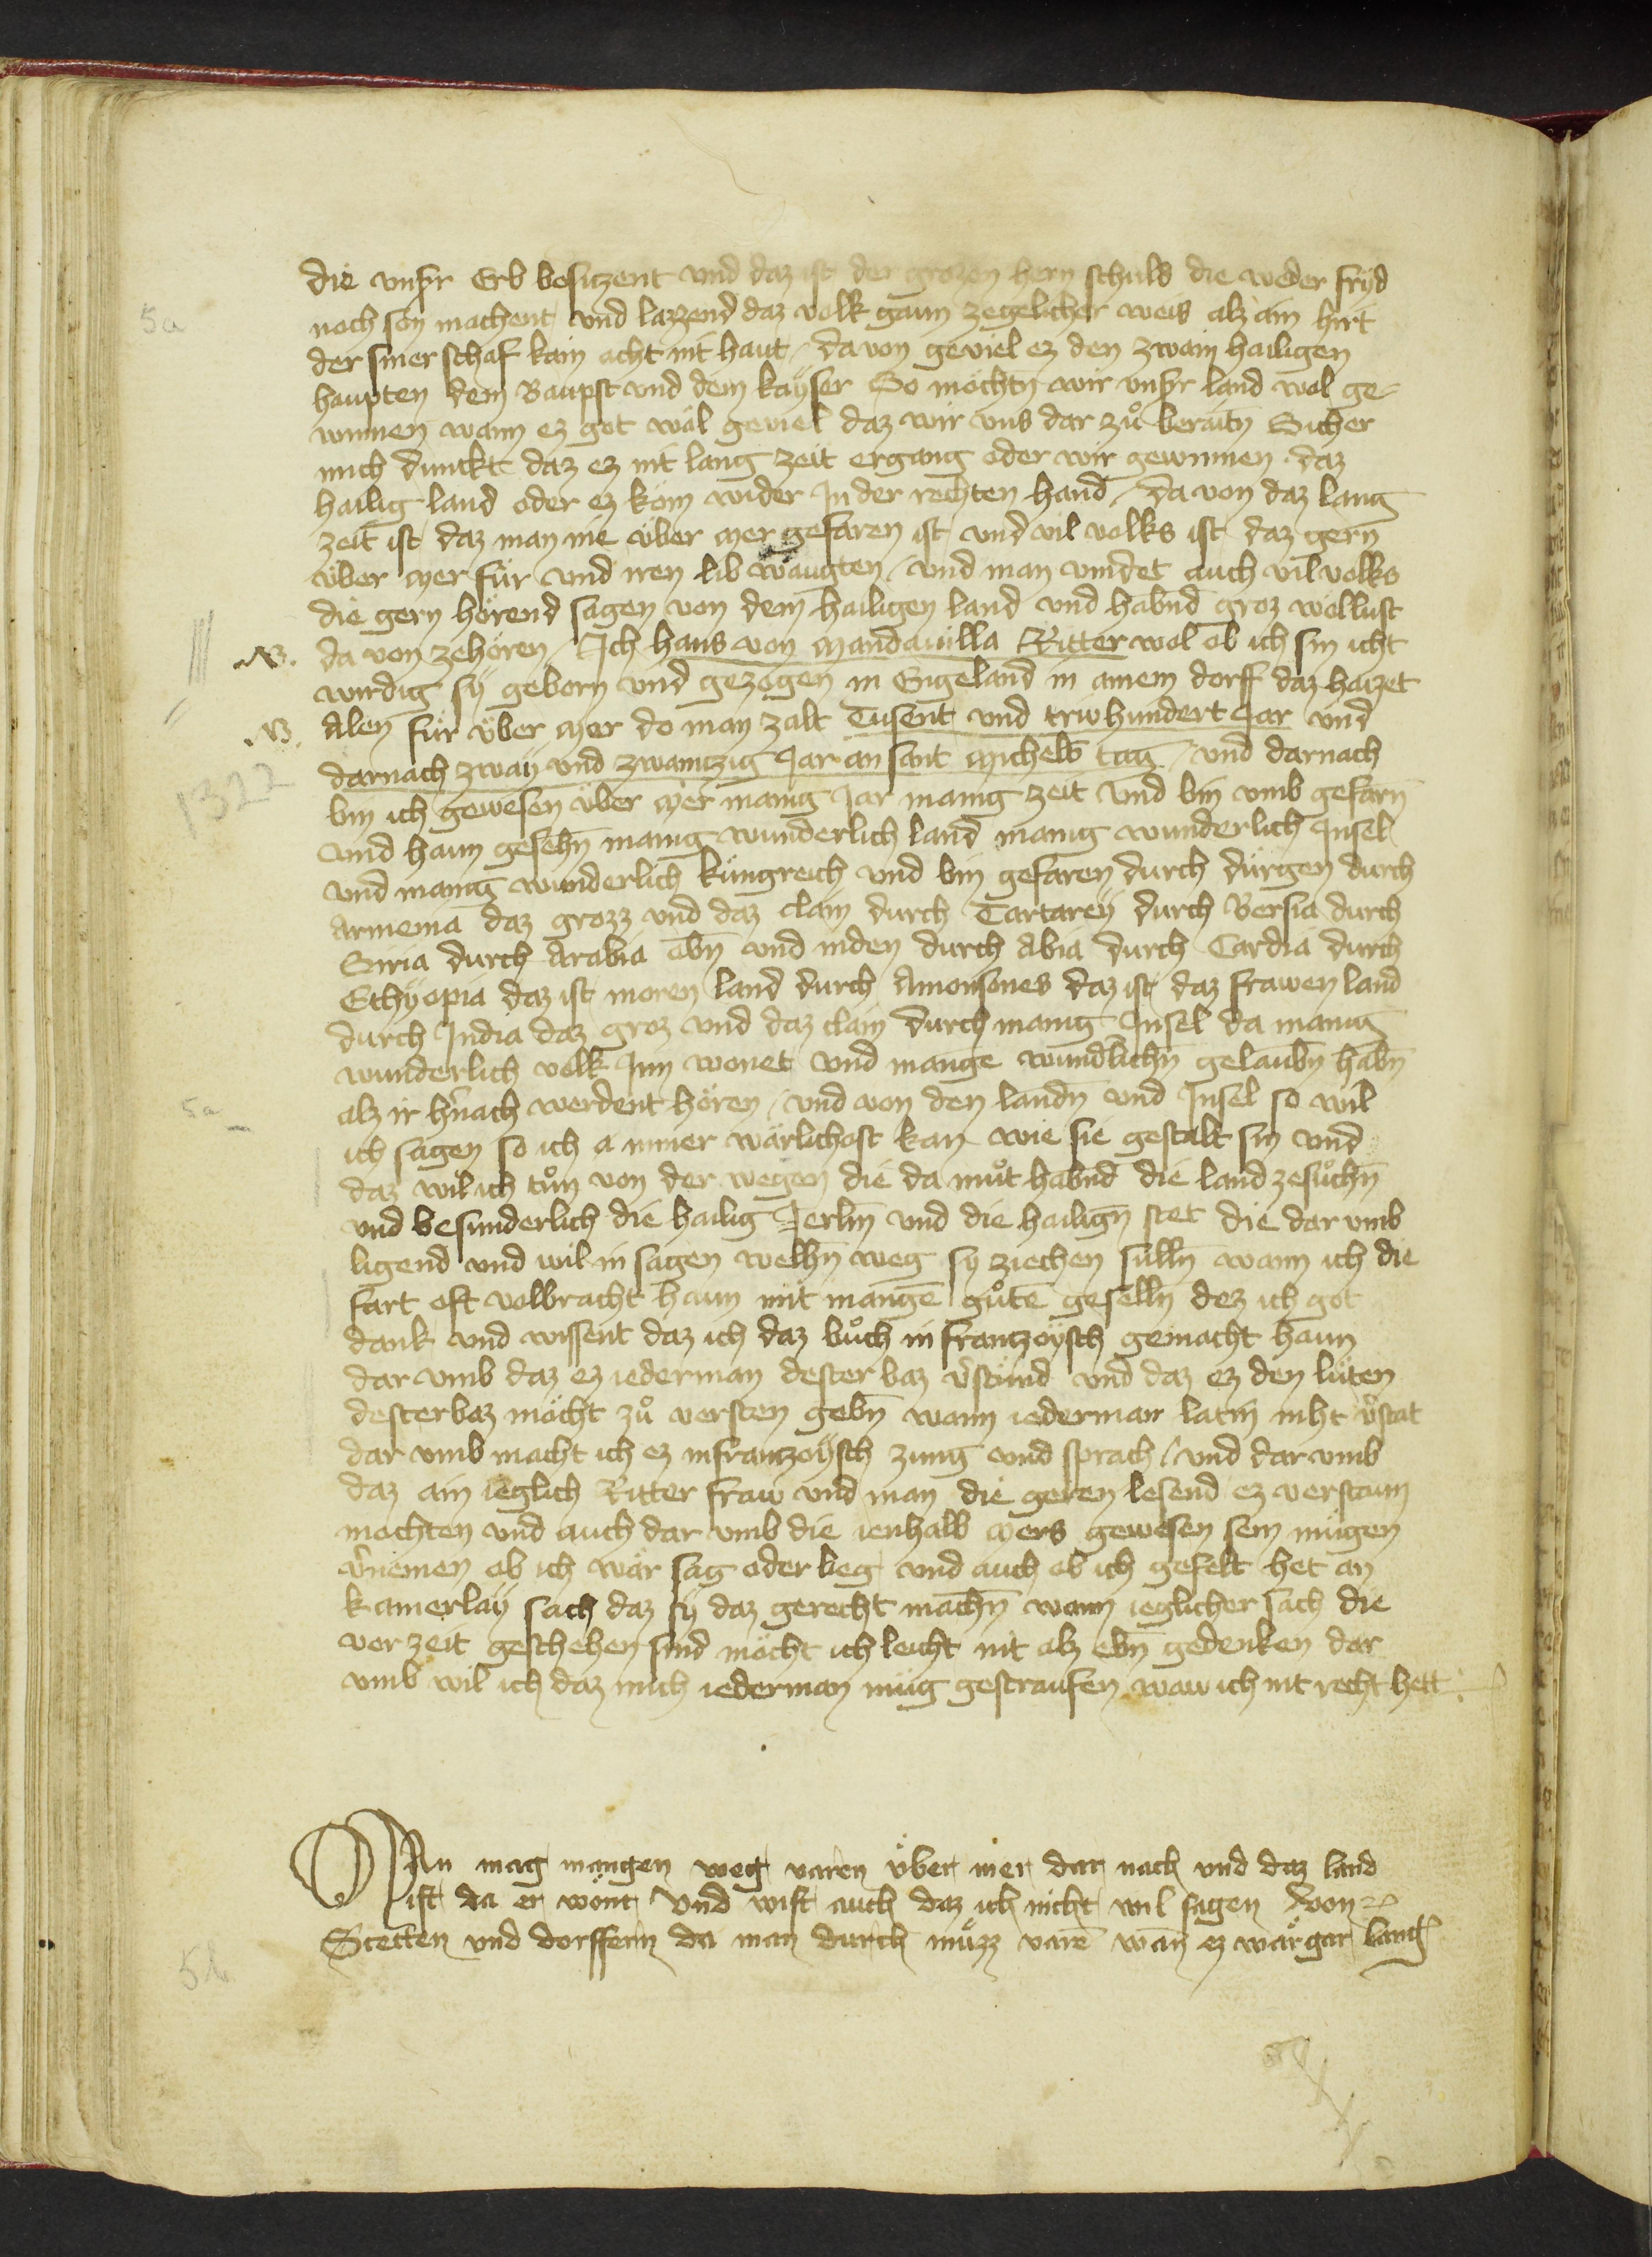 die vnsr̄ Erb besitzent vnd daz ist der grozen hern schuld die weder fryd
5a
noch son machent vnd lazzend daz volk gaun zegelicher weis alz ain hirt
der siner schaf kain acht nit haut / Da von geviel ez den zwain hailigen
haupten dem Baupst vnd dem kayser So möchtn̄ wir vnsr̄ land wol ge-
winnen wann ez got wäl geviel daz wir vns dar zů beraitn̄ Sicher
mich dunckt daz ez nit lang zeit ergang oder wir gewinnen daz
hailig land oder ez köm wider In der rechten hand / Da von daz lang
zeit ist daz man nie über mer gefaren ist vnd vil volks ist daz gern
über mer für vnd iren lib waugten / vnd man vindet auch vil volks
die gern hörend sagen von dem hailigen land vnd habnd groz wollust
NB. da von zehören / Ich hans von Mandauilla Ritter wol ob ich sin icht
wirdig sÿ geborn vnd gezogen in Engeland in ainem dorff daz haizet
NB. Alen für über mer do man zalt Tusent vnd triwhundert Jar vnd
darnach zwaÿ vnd zwaintzig Jar an sant Michels tag / vnd darnach
1322
bin ich gewesen über mer manig Jar manig zeit vnd bin vmb gefarn
vnd haun gesehn̄ manig wunderlich land manig wunderlich Insel
vnd manig wunderlich küngreich vnd bin gefaren durch dürgen durch
Armenia daz grozz vnd daz clain durch Tartareÿ durch Persia durch
Siria durch Arabia obn̄ vnd niden durch Abia durch Cardia durch
Ethÿopia daz ist moren land durch Amonsones daz ist daz frawen land
durch India daz groz vnd daz clain durch manig Insel da manig
wunderlich volk Inn wonet vnd mange wundlichn̄ gelaubn̄ habn̄
5a
alz ir hn̄ach werdent hören / vnd von den landn̄ vnd Insel so wil
ich sagen so ich a nimer wärlichost kan wie sie gestalt sin vnd
daz wil ich tůn von der wegen die da můt habnd die land zesůchn̄
vnd besunderlich die hailig Jerlm̄ vnd die hailign̄ stet die dar vmb
ligend vnd wil in sagen welhn̄ weg sy ziechen sülln̄ wann ich die
fart oft volbracht haun mit mangē gůtē geselln̄ dez ich got
dank vnd wissent daz ich daz bůch in frantzoÿsch gemacht haun
dar vmb daz ez iederman dester baz v̄stünd vnd daz ez den lüten
desterbaz möcht zů versten gebn̄ wann iederman latin niht v̄stat
dar vmb macht ich ez in frantzoÿsch zung vnd sprach / vnd dar vmb
daz ain ieglich Ritter fraw vnd man die geren lesend ez verstaun
mochten vnd auch dar vmb die ienhalb mers gewesen sein mügen
v̄nemen ob ich wär sag oder lieg vnd auch ob ich gefelt het an
kainerlaÿ sach daz sÿ daz gerecht machn̄ wann ieglicher sach die
vor zeit geschehen sind möcht ich leicht nit alz ebn̄ gedenken dar
vmb wil ich daz mich iederman müg gestraufen waw ich nit recht hett
MAn mag mangen weg varen über mer dar nach vnd daz land
ist da er wont Vnd wist auch daz ich nicht wil sagen von
Stetten vnd dorffern da man durch müzz varē wan̄ ez wär gar lang
5b